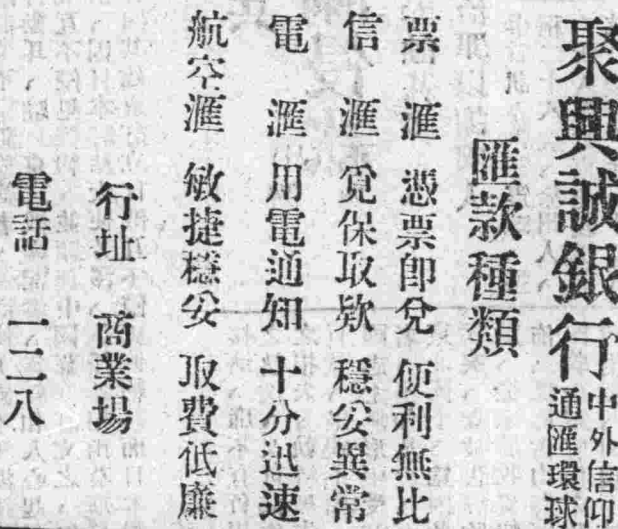 聚興誠銀行
中外信仰
通匯環球
匯款種類
票滙 憑票即兌 便利無比
信滙 覓保取欵 穩妥異常
電滙 用電通知 十分迅速
航空滙 敏捷穩妥 取費低廉
行址 商業場
電話 一二八